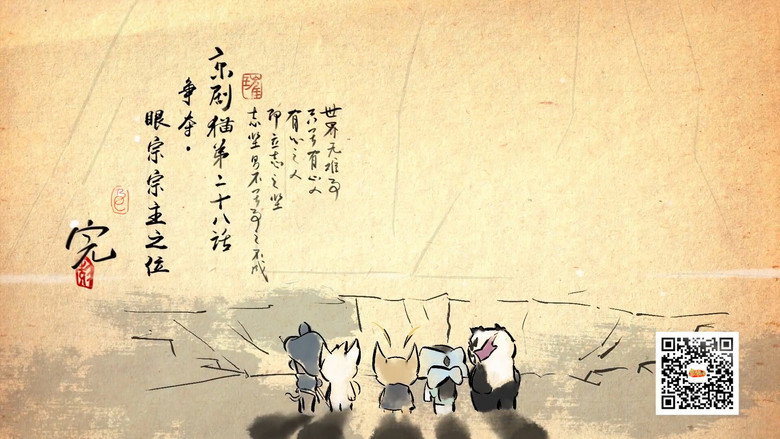 世界无难事
只畏有心人
有心之人
即立志之坚
志坚则不畏事之不成
京剧猫第二十八话
争夺·
眼宗宗主之位
完